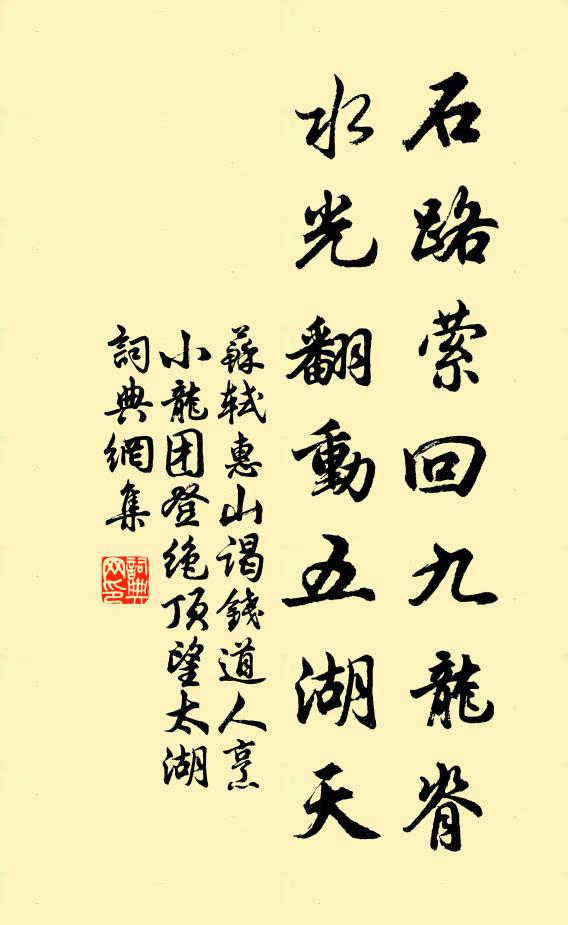 石路萦回九龍脊
水光翻動五湖天
蘇軾惠山谒錢道人烹
小龍团登绝顶望太湖
詞典網集
詞典
网印